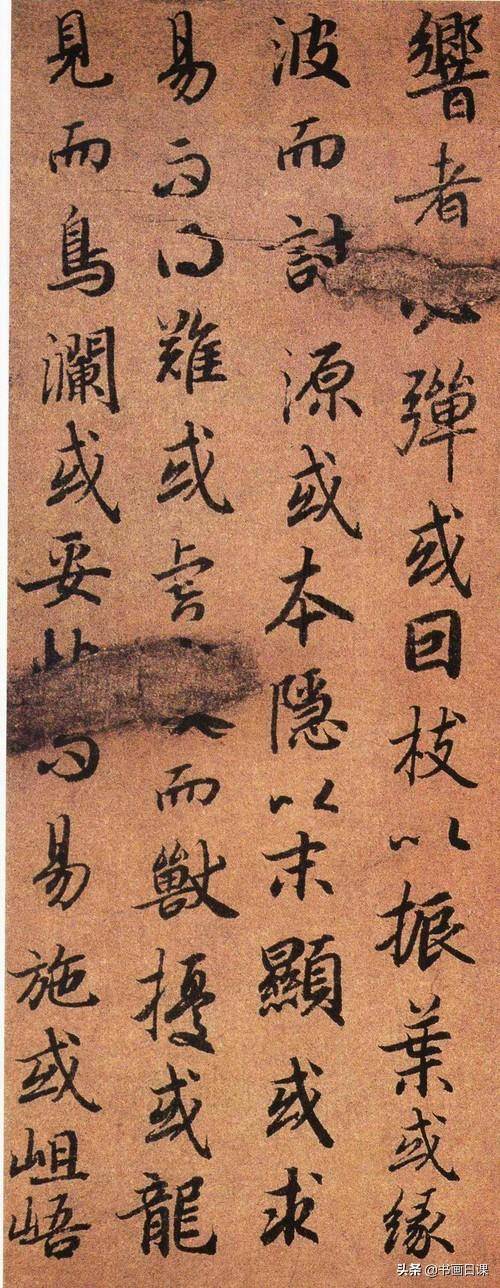 響者彈或因枝以振葉或緣
波而討源或本隱以末顯或求
易而得難或而獸擾或龍
見而鳥瀾或妥而易施或岨峿
头条 @书画日课